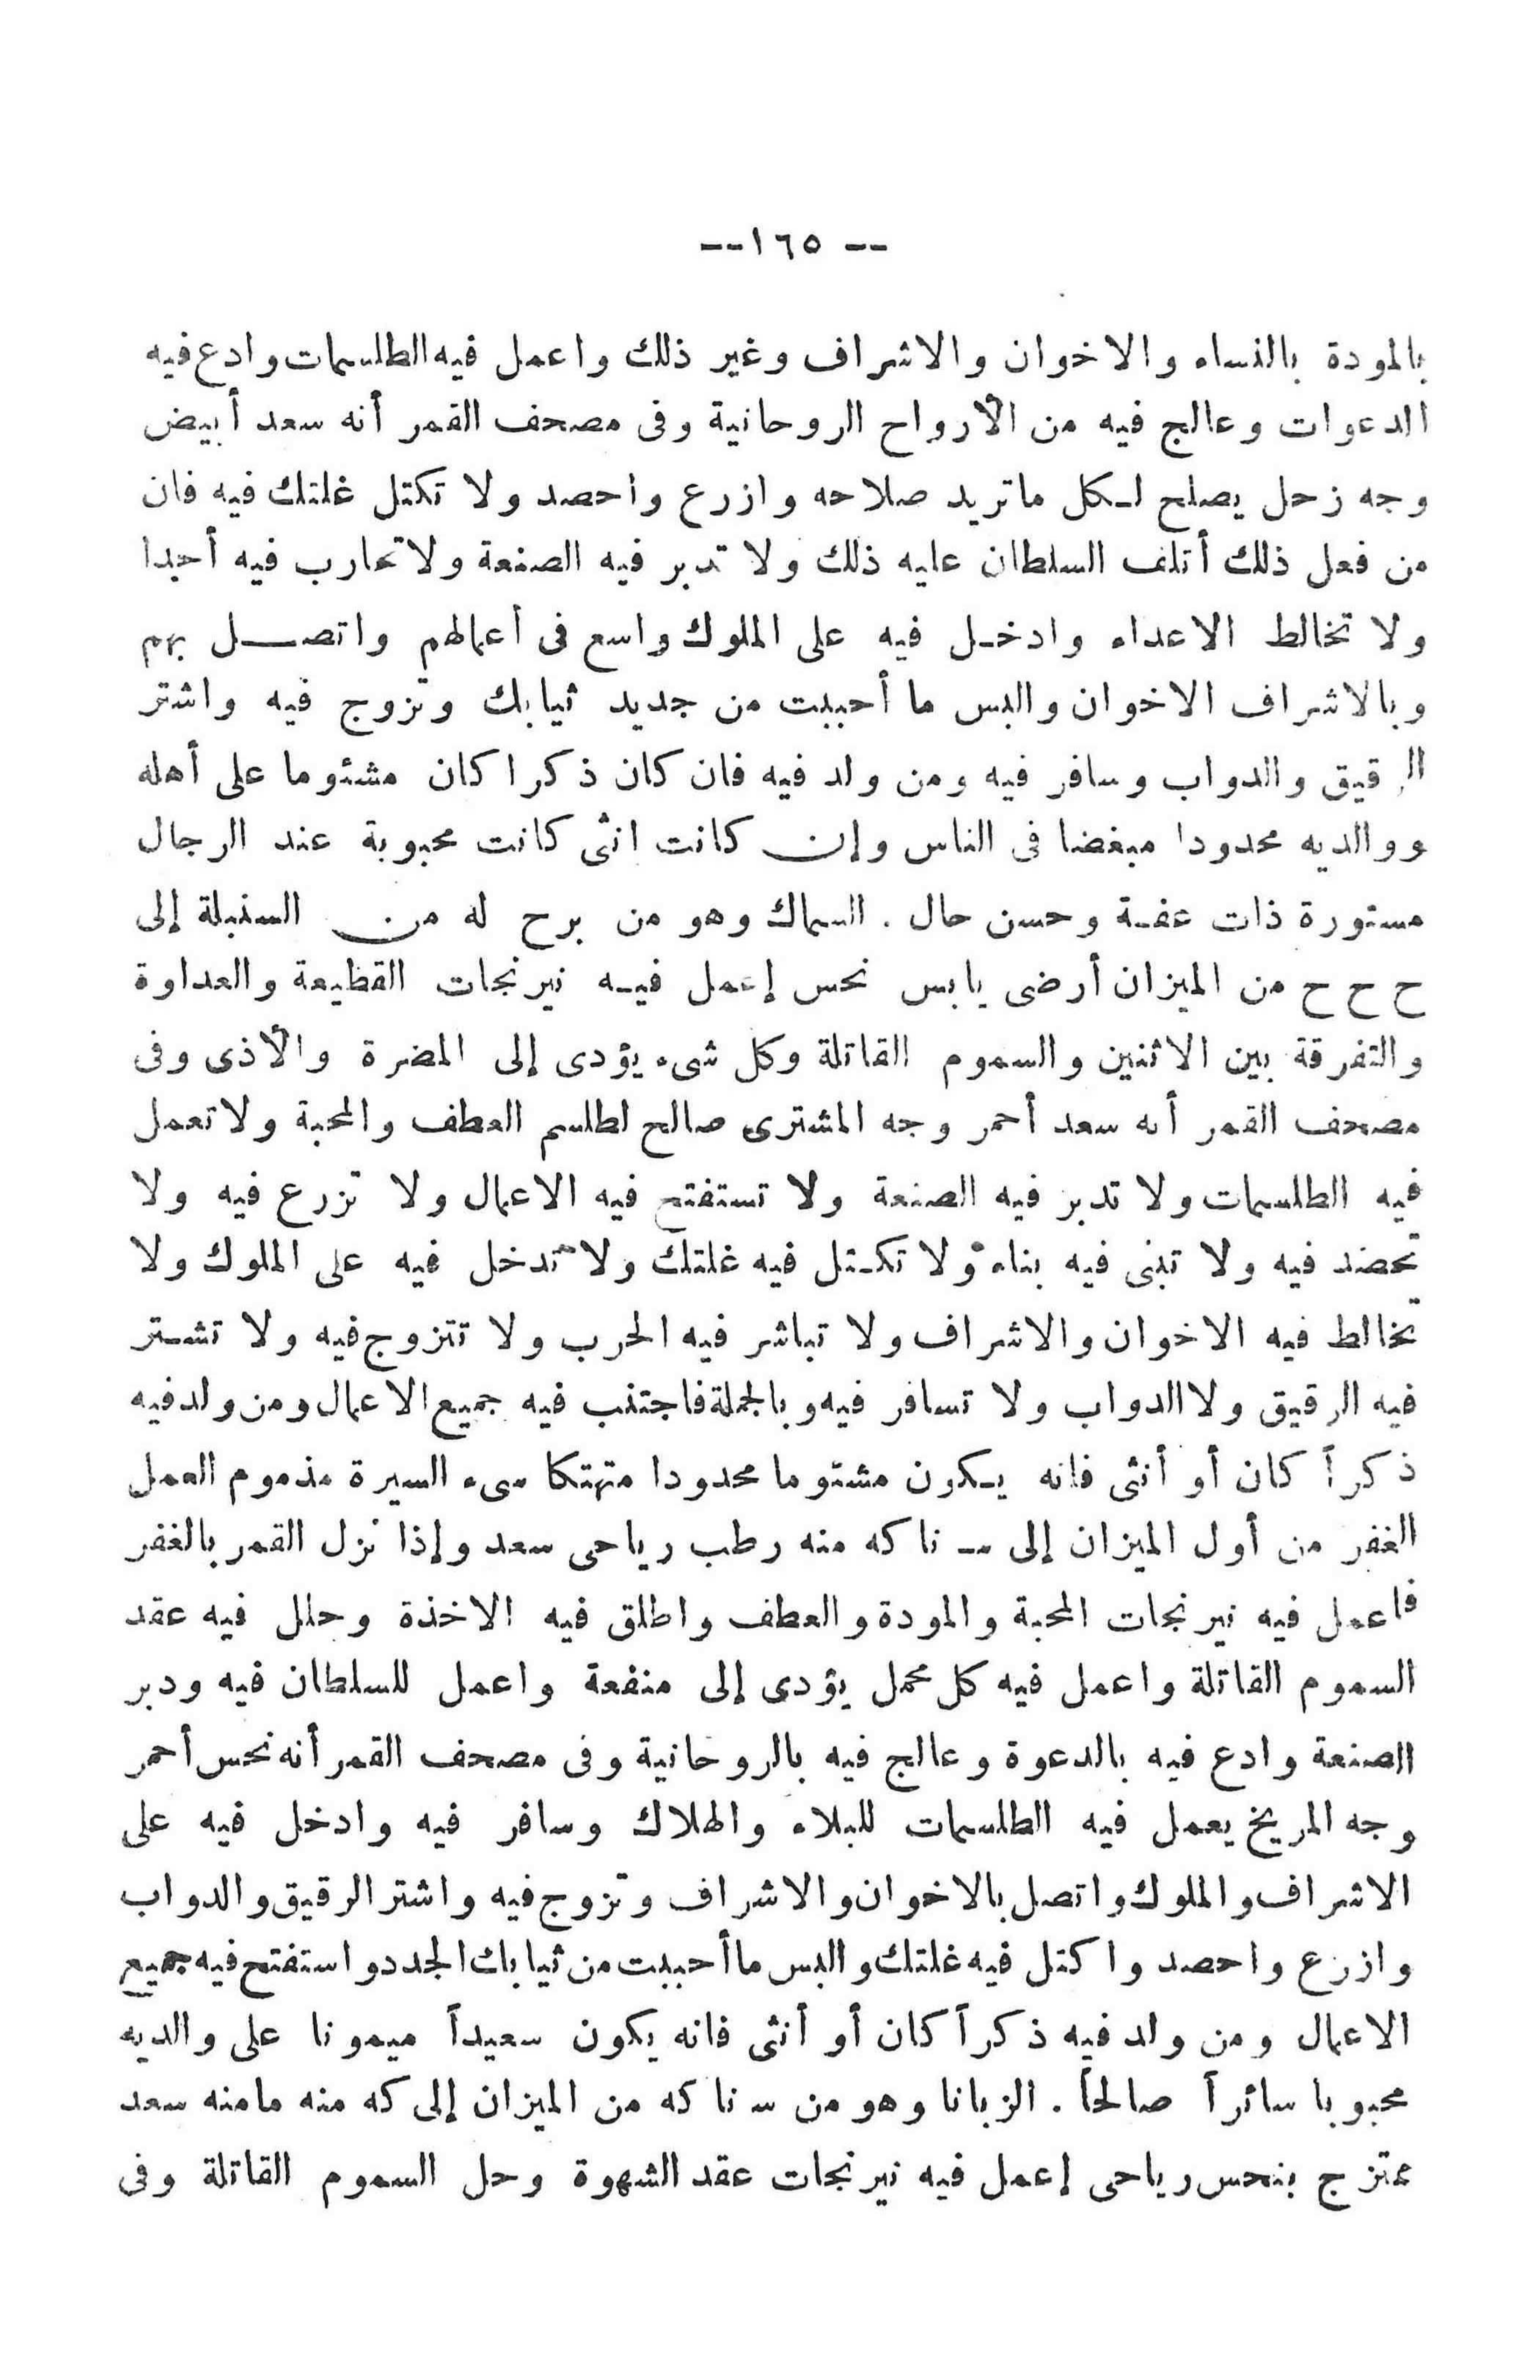 -- ١٦٥ --
بالمودة بالنساء والاخوان والاشراف وغير ذلك واعمل فيه الطلسمات وادع فيه
الدعوات وعالج فيه من الأرواح الروحانية وفى مصحف القمر أنه سعد أبيض
وجه زحل يصلح لـكل ماتريد صلاحه وازرع واحصد ولا تكتل غلتك فيه فان
من فعل ذلك أتلف السلطان عليه ذلك ولا تدبر فيه الصنعة ولا تحارب فيه أحدا
ولا تخالط الاعداء وادخـل فيه على الملوك واسع فى أعمالهم واتصـــل بهم
وبالاشراف الاخوان والبس ما أحببت من جديد ثيابك وتزوج فيه واشتر
الرقيق والدواب وسافر فيه ومن ولد فيه فان كان ذكرا كان مشئوما على أهله
ووالديه محدودا مبغضا فى الناس وإن كانت انثى كانت محبوبة عند الرجال
مستورة ذات عفـة وحسن حال . السماك وهو من برح له من السنبلة إلى
ح ح ح من الميزان أرضى يابس نحس إعمل فيـه نيرنجات القطيعة والعداوة
والتفرقة بين الاثنين والسموم القاتلة وكل شىء يؤدى إلى المضرة والأذى وفى
مصحف القمر أنه سعد أحمر وجه المشترى صالح لطلسم العطف والمحبة ولا تعمل
فيه الطلسمات ولا تدبر فيه الصنعة ولا تستفتح فيه الاعمال ولا تزرع فيه ولا
تحضد فيه ولا تبنى فيه بناء ولا تكـتل فيه غلتك ولا تدخل فيه على الملوك ولا
تخالط فيه الاخوان والاشراف ولا تباشر فيه الحرب ولا تتزوج فيه ولا تشـتر
فيه الرقيق ولا الدواب ولا تسافر فيه وبالجملة فاجتنب فيه جميع الاعمال ومن ولد فيه
ذكراً كان أو أنثى فانه يـكون مشئوما محدودا متهتكا سىء السيرة مذموم العمل
الغفر من أول الميزان إلى ناكه منه رطب رياحى سعد وإذا نزل القمر بالغفر
فاعمل فيه نيرنجات المحبة والمودة والعطف واطلق فيه الاخذة وحلل فيه عقد
السموم القاتلة واعمل فيه كل محمل يؤدى إلى منفعة واعمل للسلطان فيه ودبر
الصنعة وادع فيه بالدعوة وعالج فيه بالروحانية وفى مصحف القمر أنه نحس أحمر
وجه المريخ يعمل فيه الطلسمات للبلاء والهلاك وسافر فيه وادخل فيه على
الاشراف والملوك واتصل بالاخوان والاشراف وتزوج فيه واشتر الرقيق والدواب
وازرع واحصد واكتل فيه غلتك والبس ما أحببت من ثيابك الجدد واستفتح فيه جميع
الاعمال ومن ولد فيه ذكراً كان أو أنثى فانه يكون سعيداً ميمونا على والديه
محبوبا سائراً صالحاً . الزبانا وهو من ناكه من الميزان إلى كه منه مامنه سعد
ممتزج بنحس رياحى إعمل فيه نيرنجات عقد الشهوة وحل السموم القاتلة وفى